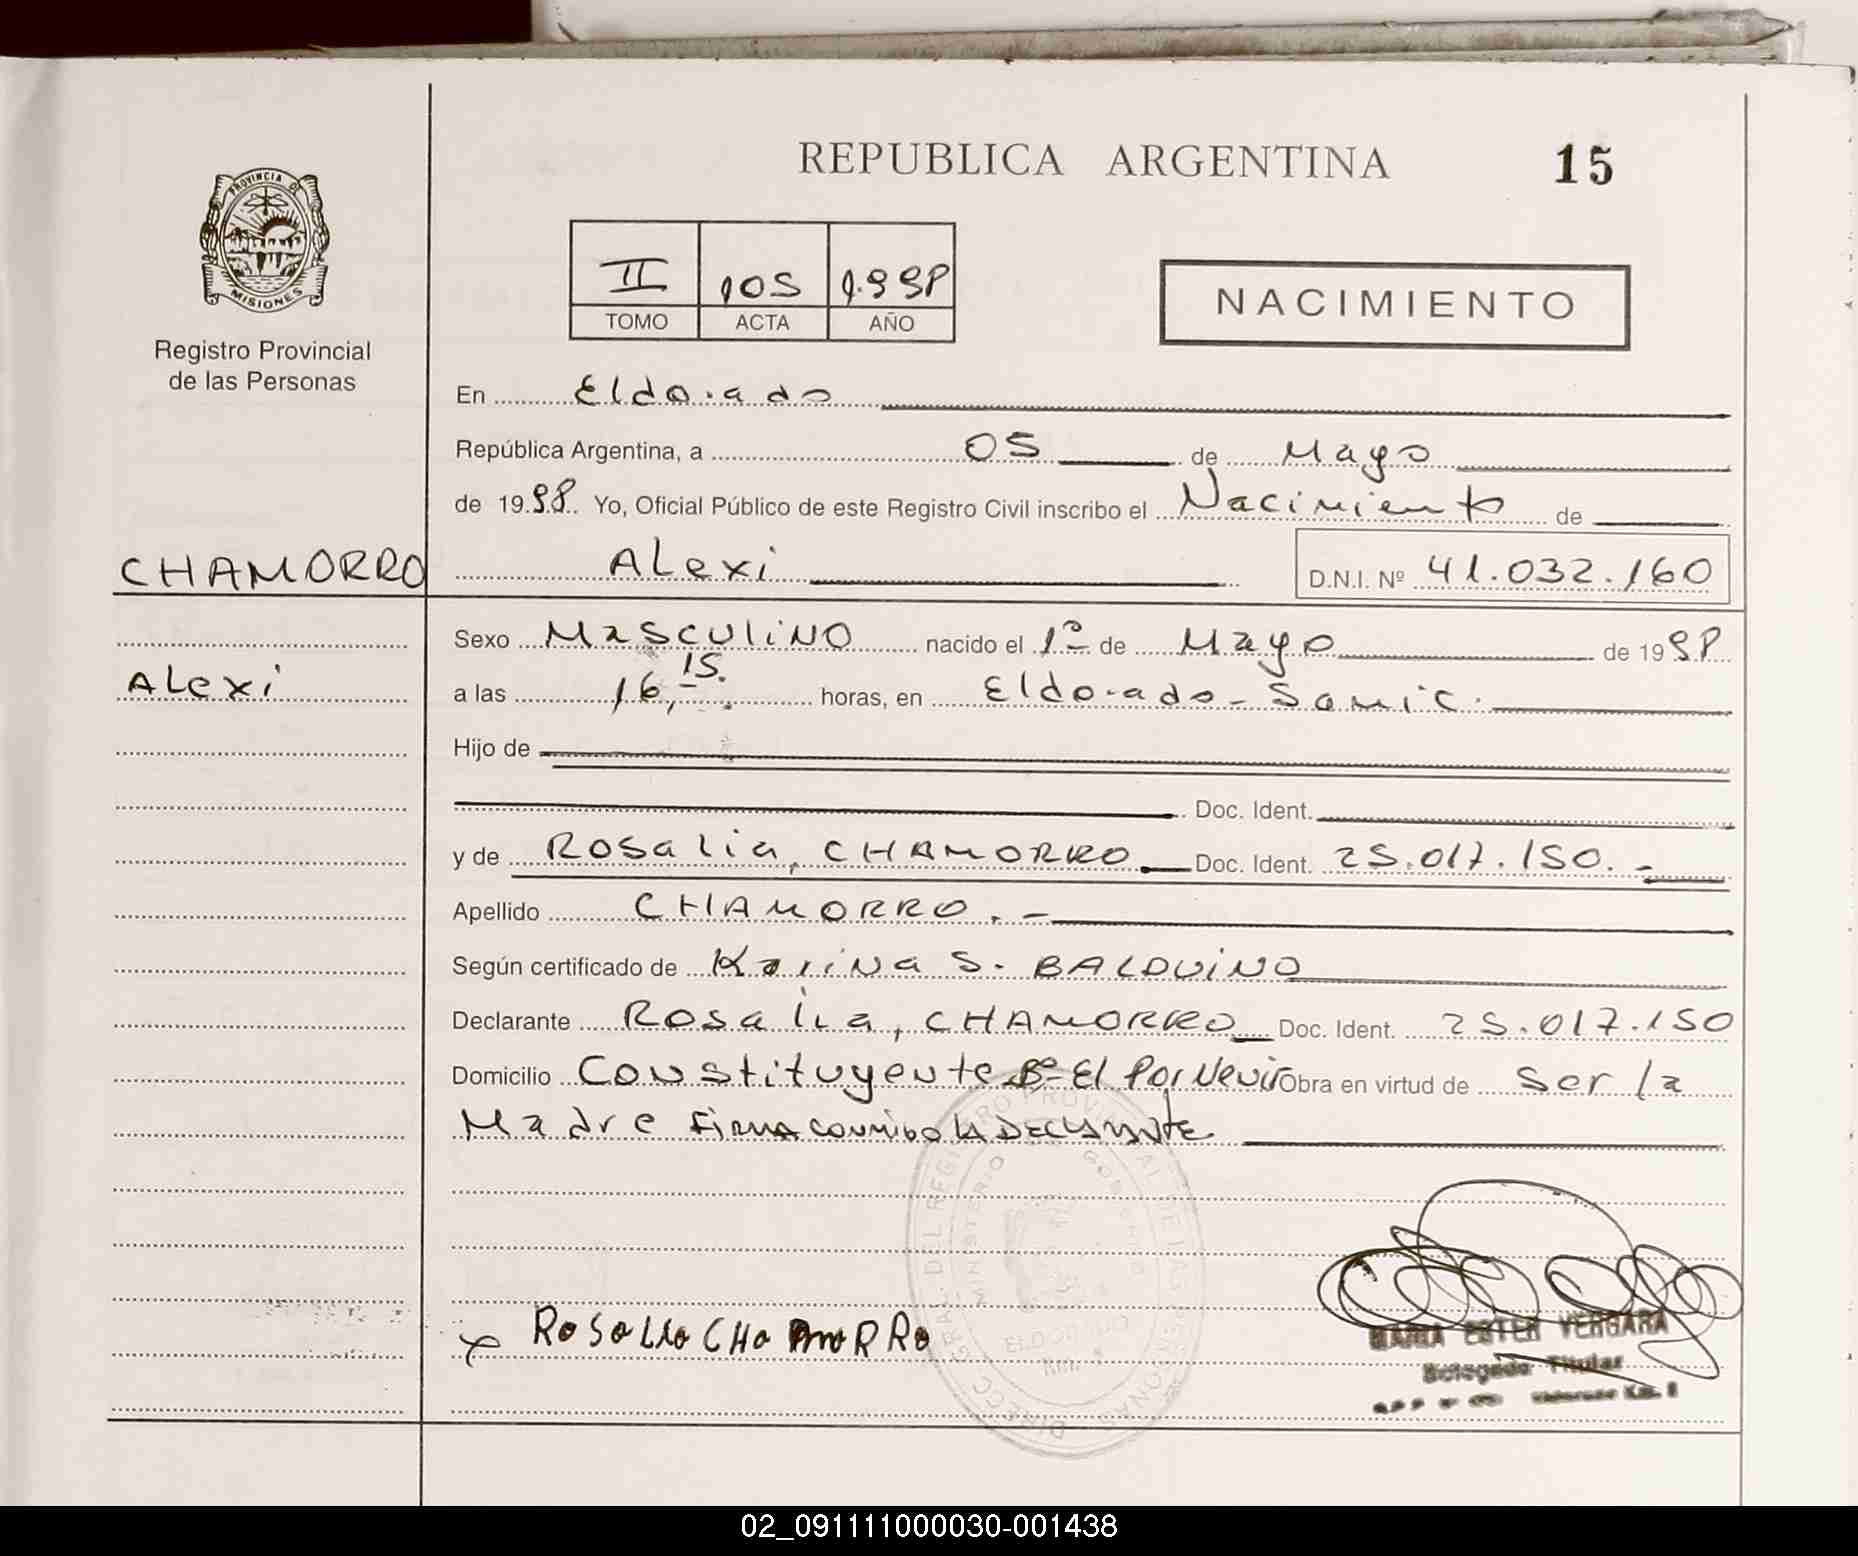 REPUBLICA ARGENTINA 15
PROVINCIA DE
MISIONES
Registro Provincial
de las Personas
II 105 1.998
TOMO ACTA AÑO
NACIMIENTO
En Eldorado
República Argentina, a 05 de Mayo
de 1998. Yo, Oficial Público de este Registro Civil inscribo el Nacimiento de
CHAMORRO Alexi D.N.I. Nº 41.032.160
Sexo Masculino nacido el 1º de Mayo de 1998
Alexi a las 16,15. horas, en Eldorado - Samic.
Hijo de
Doc. Ident.
y de Rosalia, CHAMORRO Doc. Ident. 25.017.150. -
Apellido CHAMORRO. -
Según certificado de Karina S. BALDUINO
Declarante Rosalia, CHAMORRO Doc. Ident. 25.017.150
Domicilio Constituyente Bº El Porvenir Obra en virtud de Ser la
Madre Firma conmigo la declarante
DIRECC. GRAL. DEL REGISTRO PROVINCIAL DE LAS PERSONAS
MINISTERIO GOBIERNO
ELDORADO
x Rosalia CHamorro
MARIA ESTER VERGARA
Delegada Titular
02_091111000030-001438